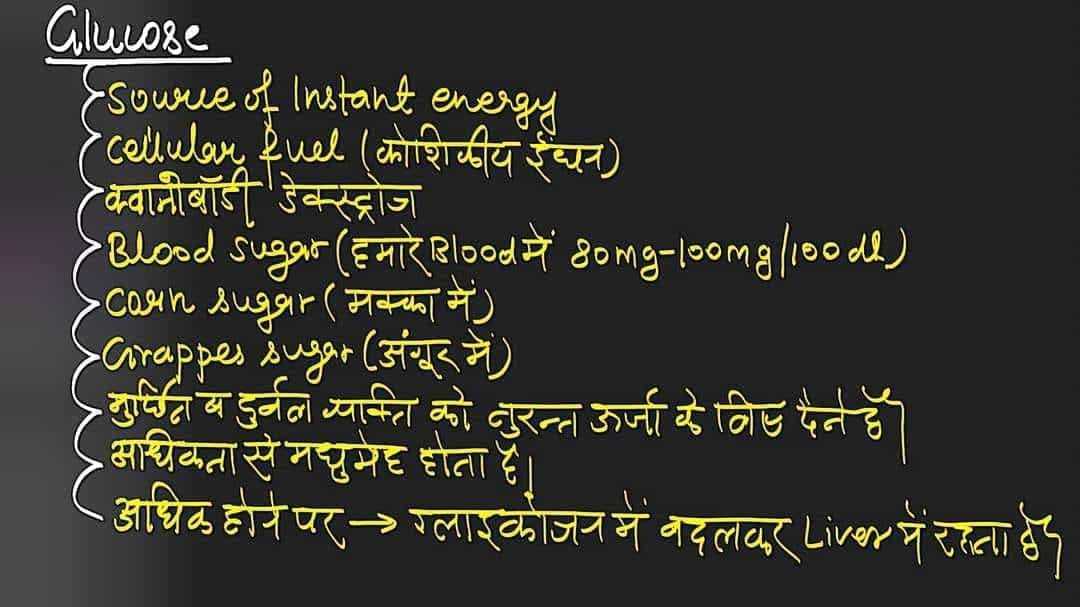 Glucose
Source of Instant energy
Cellular fuel (कोशिकीय ईंधन)
क्वानीबॉडी डेक्स्ट्रोज
Blood sugar (हमारे Blood में 80mg-100mg/100 dl)
Corn sugar (मक्का में)
Grappes sugar (अंगूर में)
मुर्छित व दुर्बल व्यक्ति को तुरन्त ऊर्जा के लिए देते हैं।
अधिकता से मधुमेह होता है।
अधिक होने पर → ग्लाइकोजन में बदलकर Liver में रहता हैं।